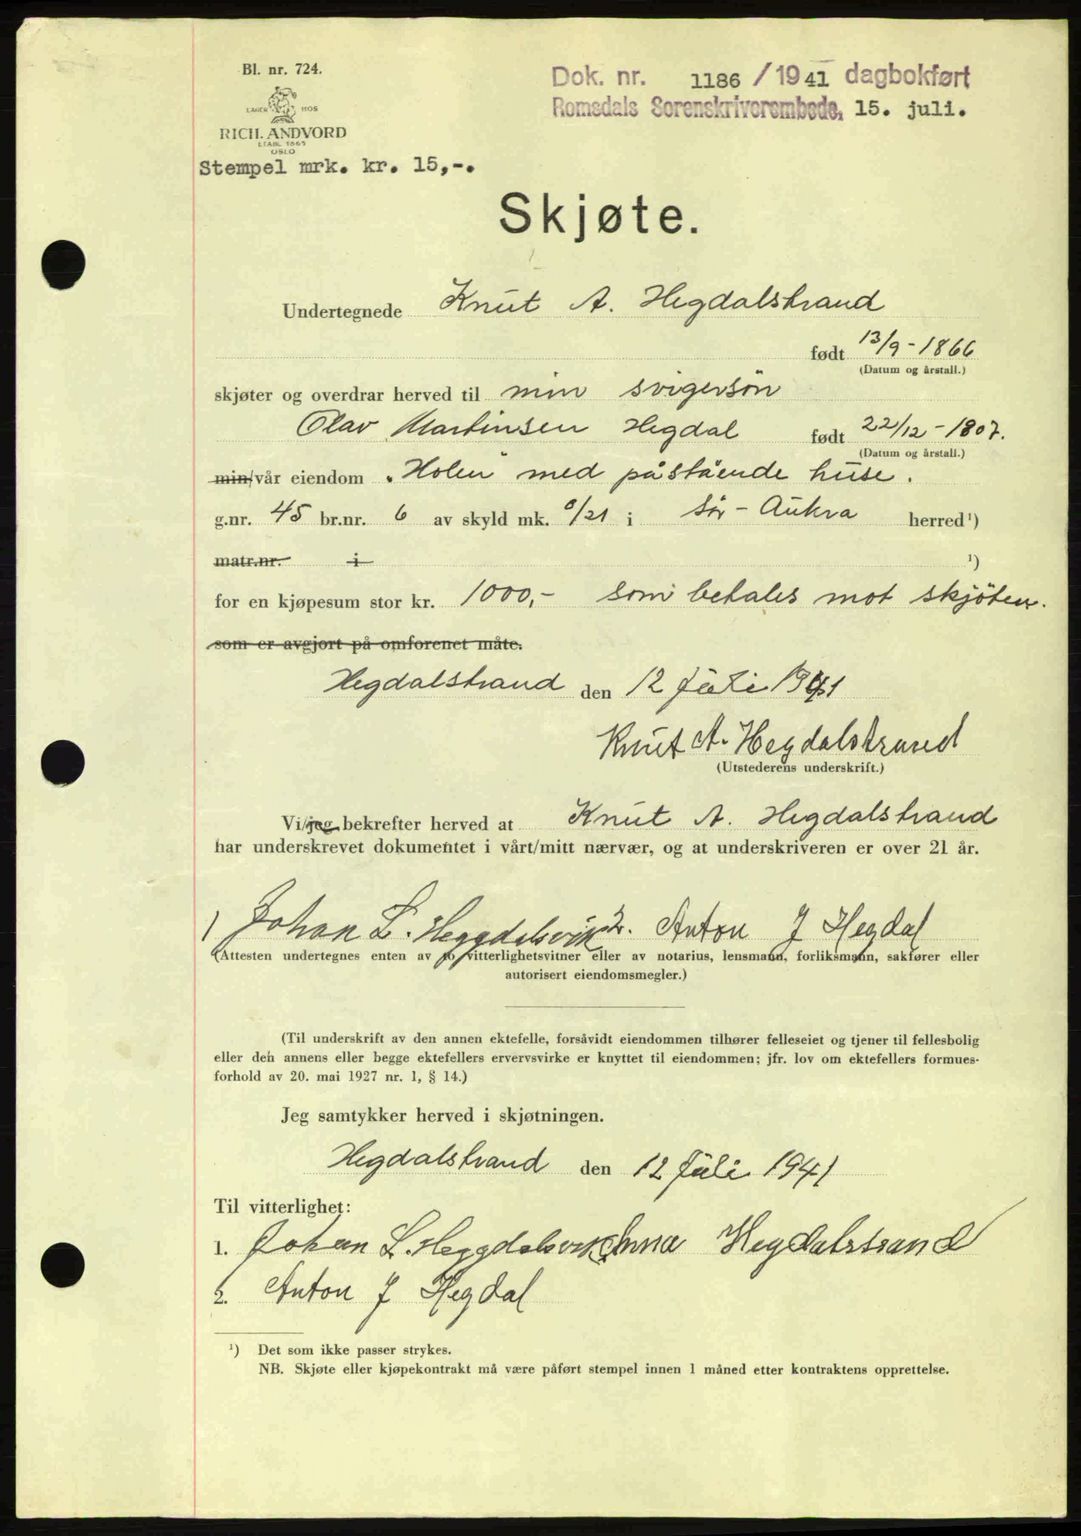 Bl. nr. 724.
LAGER HOS
RICH. ANDVORD
ETABL. 1865
OSLO
Stempel mrk. kr. 15,-.
Dok. nr. 1186 / 1941 dagbokført
Romsdals Sorenskriverembede, 15. juli.
Skjøte.
Undertegnede Knut A. Hegdalstrand
født 13/9-1866
(Datum og årstall.)
skjøter og overdrar herved til min svigersön
Olav Martinsen Hegdal født 22/12-1807.
(Datum og årstall.)
min/vår eiendom „Holen" med påstående huse.
g.nr. 45 br.nr. 6 av skyld mk. 0/21 i Sör-Aukra herred¹)
matr.nr. i ¹)
for en kjøpesum stor kr. 1000,- som betales mot skjöten.
som er avgjort på omforenet måte.
Hegdalstrand den 12 Juli 1941
Knut A. Hegdalstrand
(Utstederens underskrift.)
Vi/jeg bekrefter herved at Knut A. Hegdalstrand
har underskrevet dokumentet i vårt/mitt nærvær, og at underskriveren er over 21 år.
1 Johan L. Heggdalsvik 2. Anton J Hegdal
(Attesten undertegnes enten av to vitterlighetsvitner eller av notarius, lensmann, forliksmann, sakfører eller
autorisert eiendomsmegler.)
(Til underskrift av den annen ektefelle, forsåvidt eiendommen tilhører felleseiet og tjener til fellesbolig
eller den annens eller begge ektefellers ervervsvirke er knyttet til eiendommen; jfr. lov om ektefellers formues-
forhold av 20. mai 1927 nr. 1, § 14.)
Jeg samtykker herved i skjøtningen.
Hegdalstrand den 12 Juli 1941
Til vitterlighet:
1. Johan L. Heggdalsvik Anna Hegdalstrand
2. Anton J Hegdal
¹) Det som ikke passer strykes.
NB. Skjøte eller kjøpekontrakt må være påført stempel innen 1 måned etter kontraktens opprettelse.